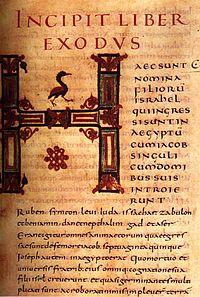 INCIPIT LIBER
EXODVS
HAEC SUNT
NOMINA
FILIORU
ISRAHEL
QUIINGRES
SISUNTIN
AEGYPTU
CUMIACOB
SINGULI
CUMDOMI
BUSSUIS
INTROIE
RUNT
Ruben symeon leui iuda isachar zabulon
et beniamin dan et nepthalim gad et aser
Erant igitur omnes animae eorum quae egres
sae sunt de femore iacob septuaginta quinque
Ioseph autem in aegypto erat Quo mortuo et
uniuersis fratribus eius omniq cognatione sua
filii israhel creuerunt et quasi germinantes multi
plicati sunt ac roborati nimis